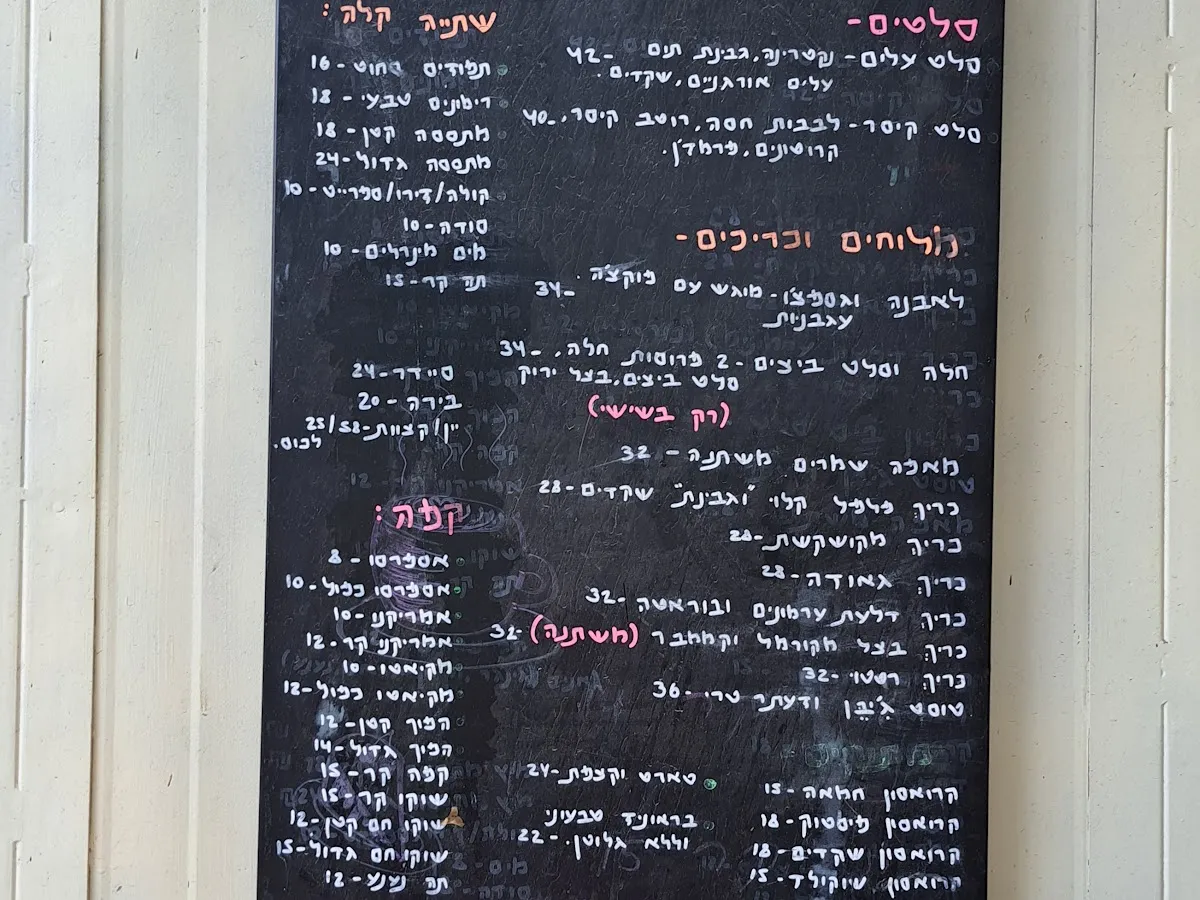 סלטים-
סלט עלים - נקטרינה, גבינת תום -42
עלים אורגניים, שקדים.
סלט קיסר - לבבות חסה, רוטב קיסר, -40
קרוטונים, פרמז'ן.
וכריכים -
לאבנה וגספצ'ו - מוגש עם פוקצ'ה. -34
עגבניות
חלה וסלט ביצים - 2 פרוסות חלה, -34
סלט ביצים, בצל ירוק
(רק בשישי)
מאפה שמרים משתנה - 32
כריך פלפל קלוי "וגבינת" שקדים - 28
כריך מקושקשת -28
כריך גאודה -28
כריך דלעת ערמונים ובוראטה -32
כריך בצל מקורמל וקממבר (משתנה) -32
כריך רסטו -32
טוסט ג'יבן וזעתר טרי -36
קרואסון חמאה - 15
קרואסון פיסטוק - 18
קרואסון שקדים - 18
קרואסון שוקולד - 15
טארט וקצפת -24
בראוניז טבעוני
וללא גלוטן. - 22
שתייה קלה:
תפוזים סחוט - 16
רימונים טבעי - 18
מתססה קטן - 18
מתססה גדול - 24
קולה/זירו/ספרייט - 10
סודה - 10
מים מינרלים - 10
תה קר - 15
סיידר - 24
בירה - 20
יין/קצוות - 25/38
לכוס.
קפה:
אספרסו - 8
אספרסו כפול - 10
אמריקנו - 10
אמריקנו קר - 12
מקיאטו - 10
מקיאטו כפול - 12
הפוך קטן - 12
הפוך גדול - 14
קפה קר - 15
שוקו קר - 15
שוקו חם קטן - 12
שוקו חם גדול - 15
תה נענע - 12